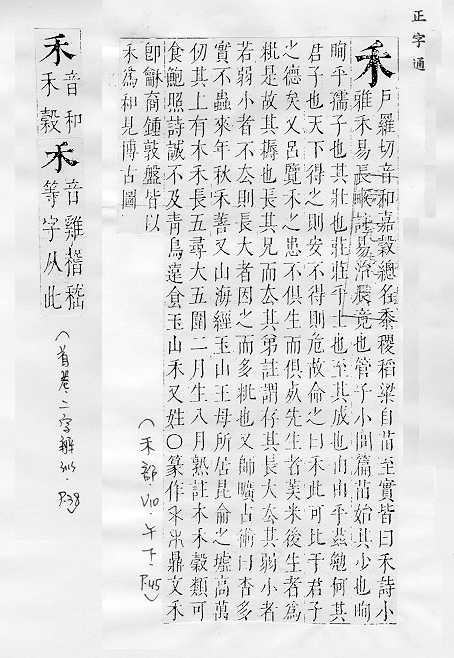 正字通
禾戶羅切音和嘉穀總名黍稷稻粱自苗至實皆曰禾詩小
雅禾易長畝註易治長竟也管子小問篇苗始其少也眴
眴乎孺子也其壯也莊莊乎士也至其成也由由乎茲勉何其
君子也天下得之則安不得則危故命之曰禾此可比于君子
之德矣又呂覽禾之患不俱生而俱死先生者美米後生者爲
粃是故其耨也長其兄而去其弟註謂存其長大去其弱小者
若弱小者不去則長大者因之而多粃也又師曠占術曰杏多
實不蟲來年秋禾善又山海經玉山王母所居昆侖之墟高萬
仞其上有木禾長五尋大五圍二月生八月熟註木禾穀類可
食鮑照詩誠不及靑鳥遠食玉山禾又姓○篆作 鼎文禾
卽龢商鍾敦盤皆以
禾爲和見博古圖
(禾部 V10.午下.P45)
禾音和
禾穀
禾音雞稽嵇
等字从此
(首卷.二字辨似.P.38)